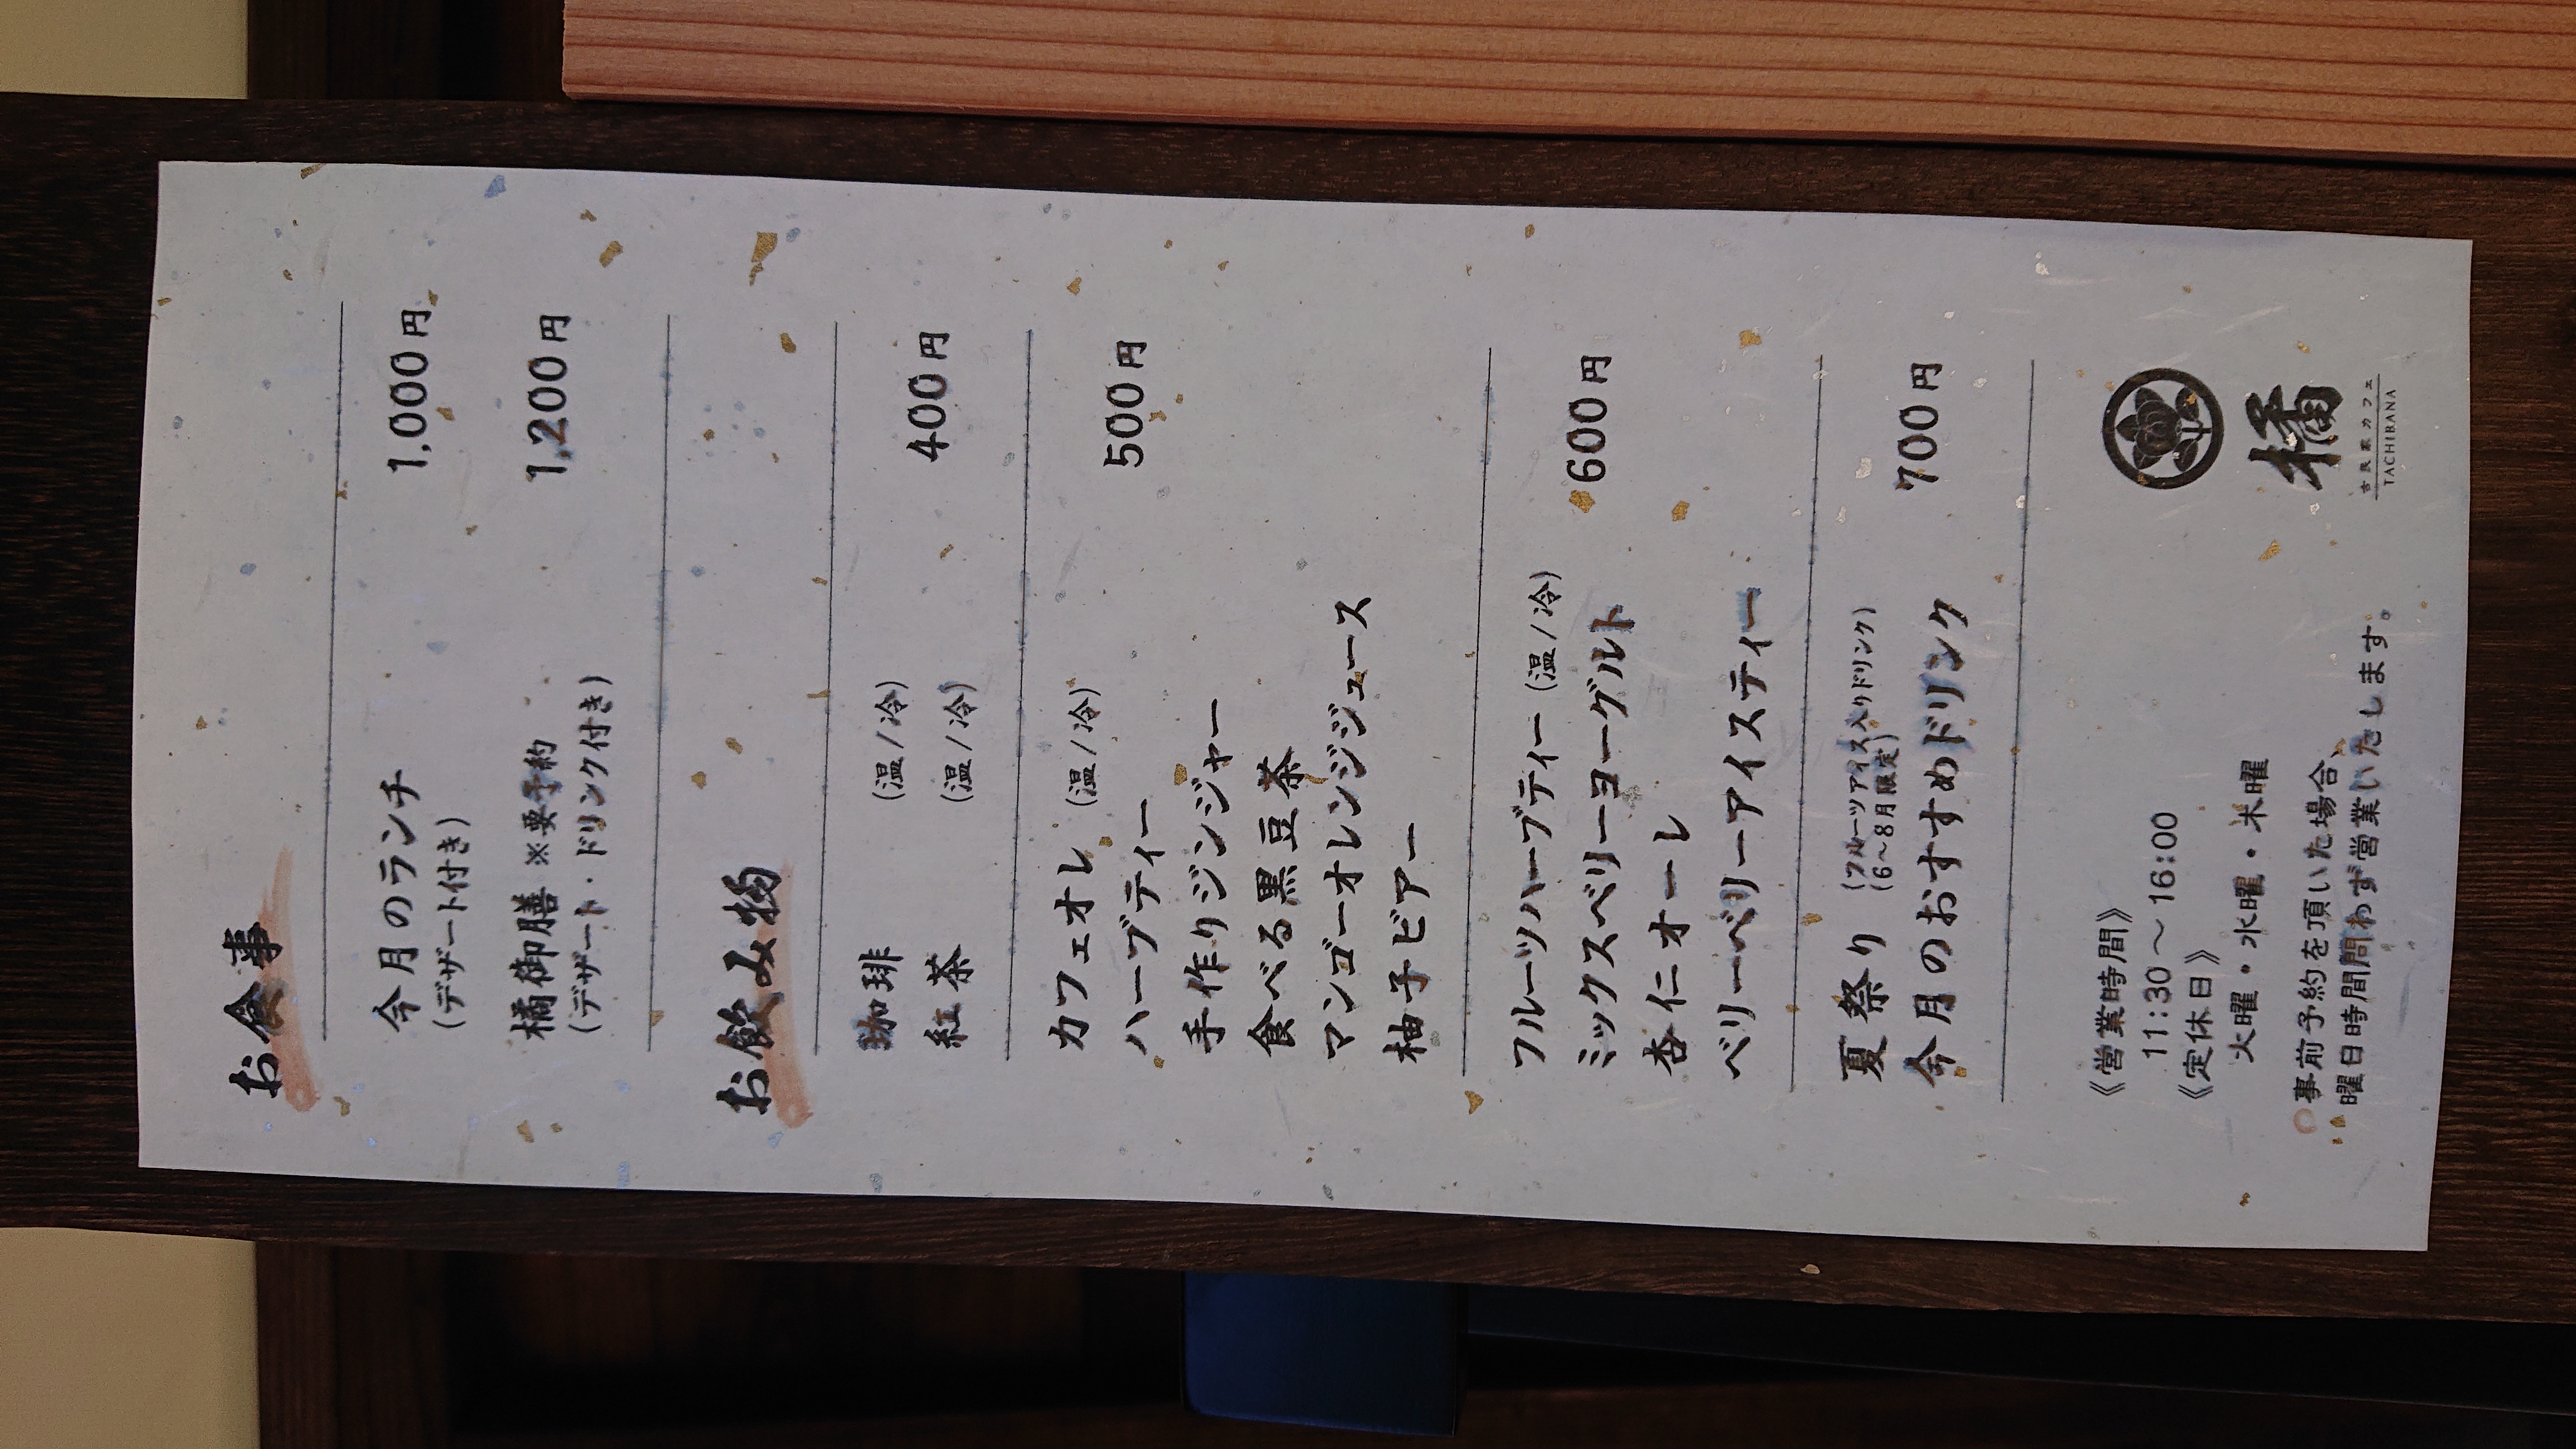 お食事
今月のランチ 1,000円
(デザート付き)
橘御膳 ※要予約 1,200円
(デザート・ドリンク付き)
お飲み物
珈琲 (温/冷)
紅茶 (温/冷) 400円
カフェオレ (温/冷)
ハーブティー 500円
手作りジンジャー
食べる黒豆茶
マンゴーオレンジジュース
柚子ビアー
フルーツハーブティー (温/冷)
ミックスベリーヨーグルト 600円
杏仁オーレ
ベリーベリーアイスティー
夏祭り (フルーツアイス入りドリンク)
(6〜8月限定)
今月のおすすめドリンク 700円
《営業時間》
11:30〜16:00
《定休日》
火曜・水曜・木曜
○事前予約を頂いた場合、
曜日時間問わず営業いたします。
橘
古民家カフェ
TACHIBANA